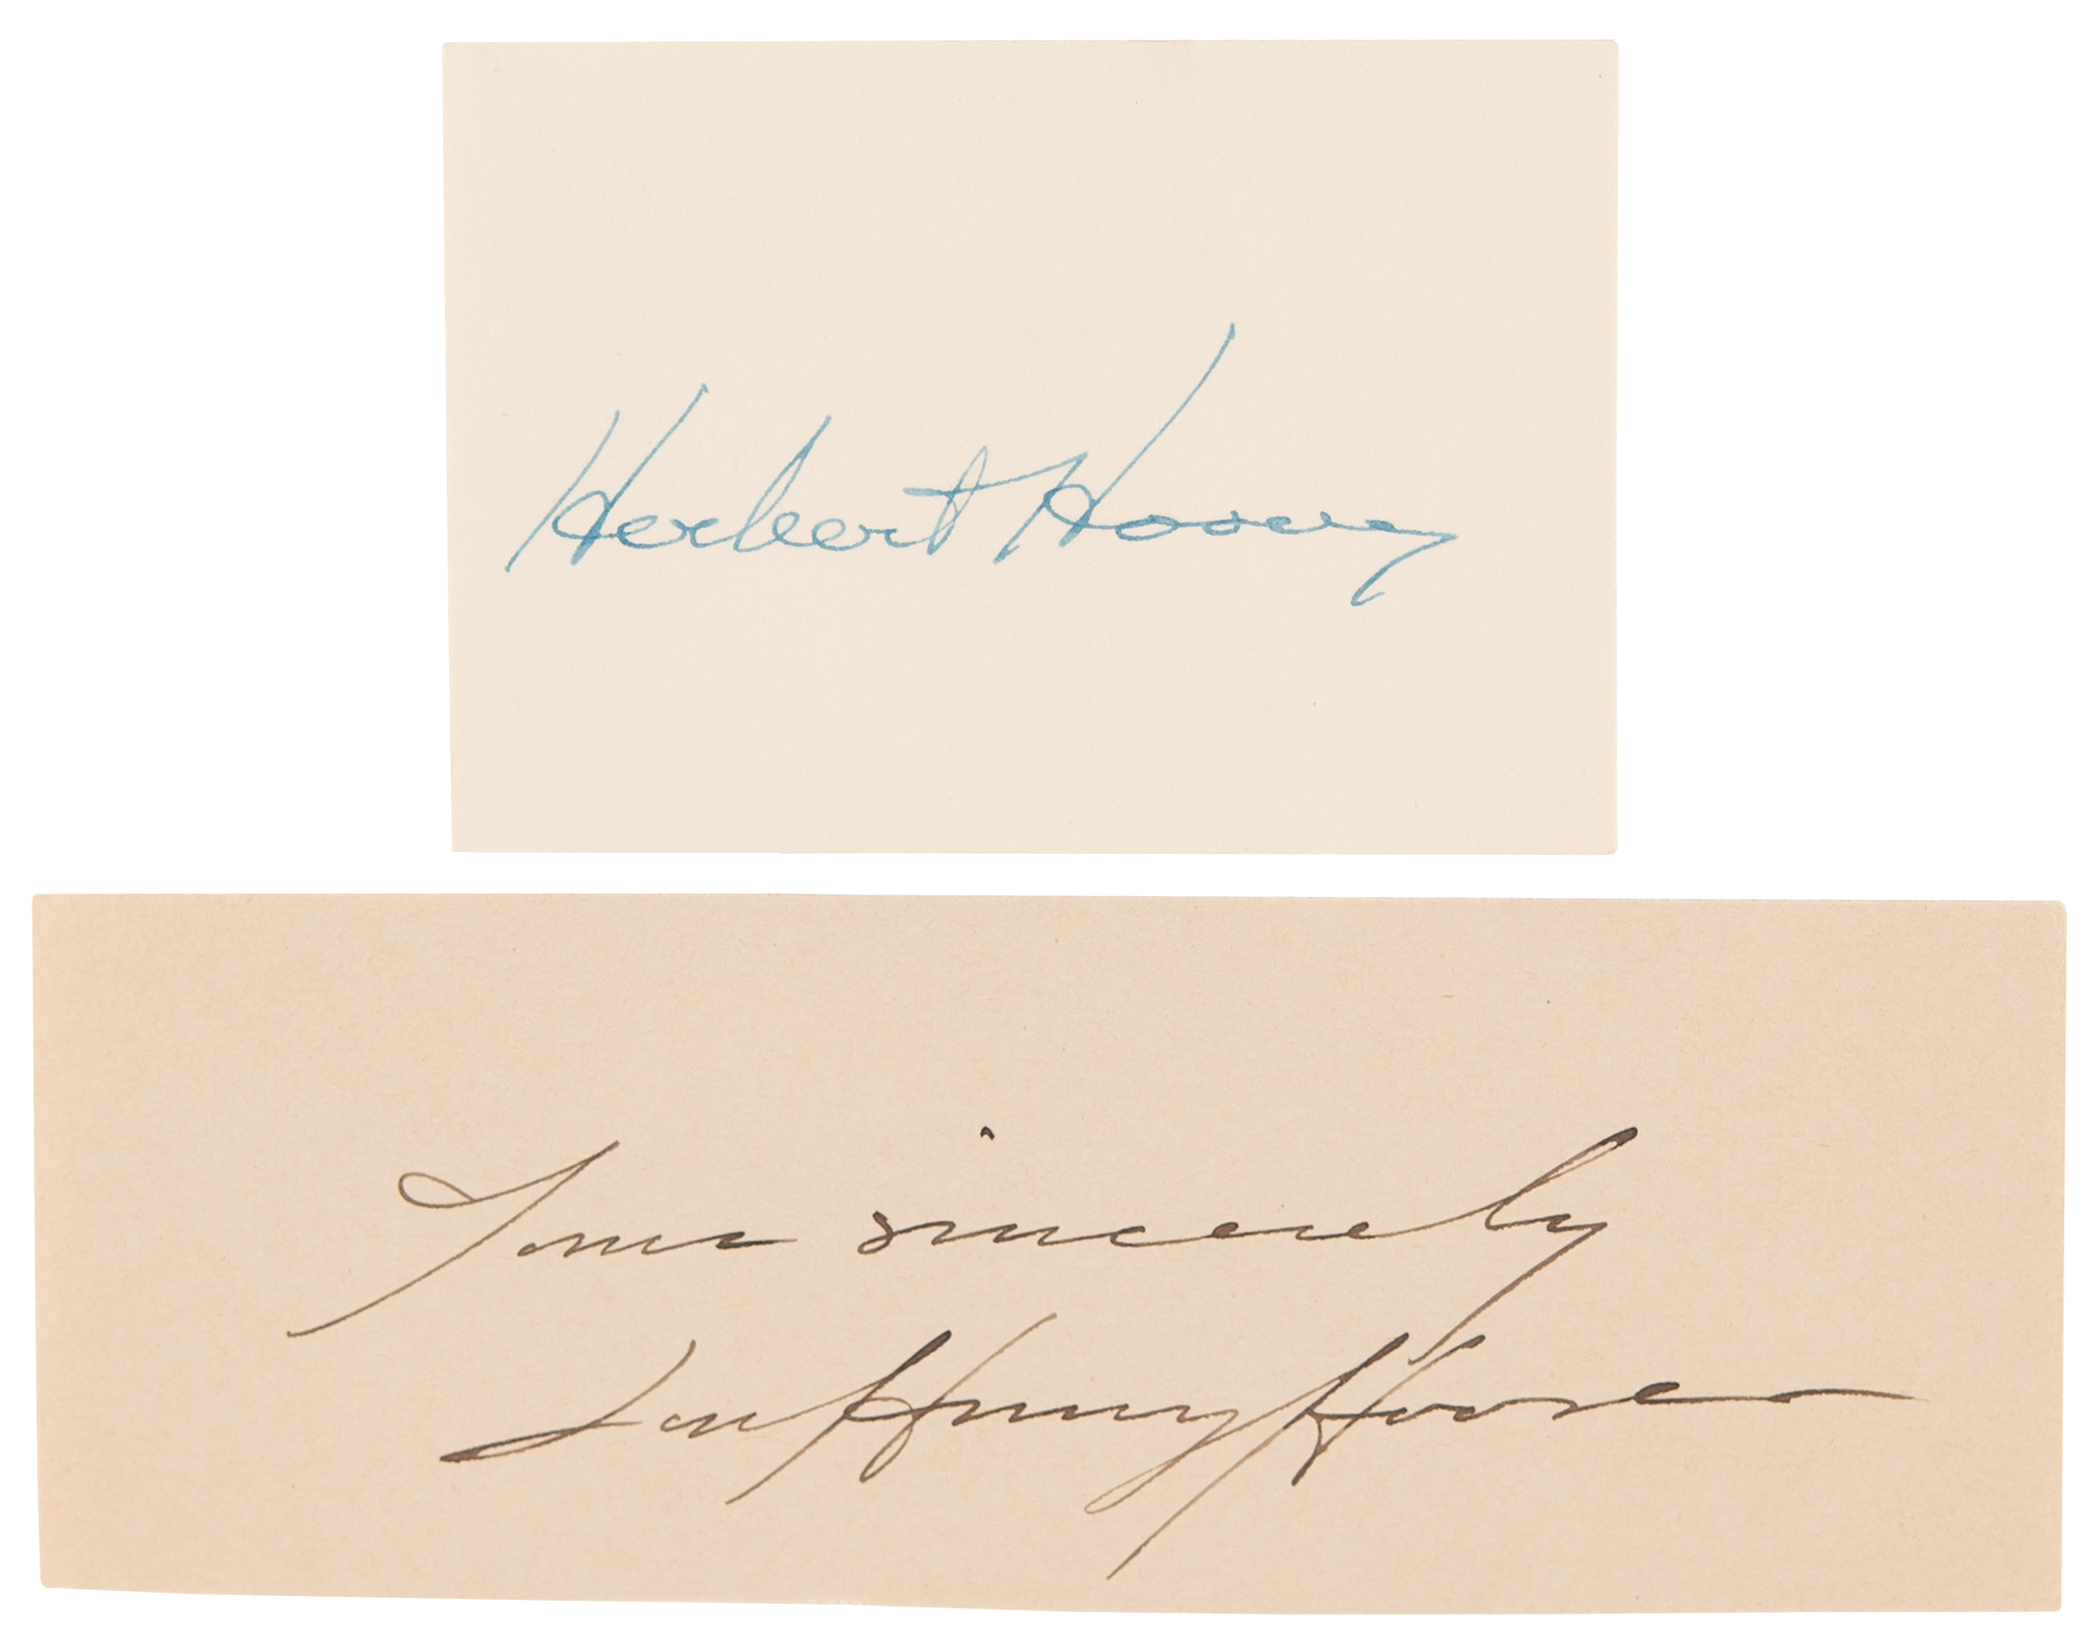 Herbert Hoover
Yours sincerely
Lou Henry Hoover